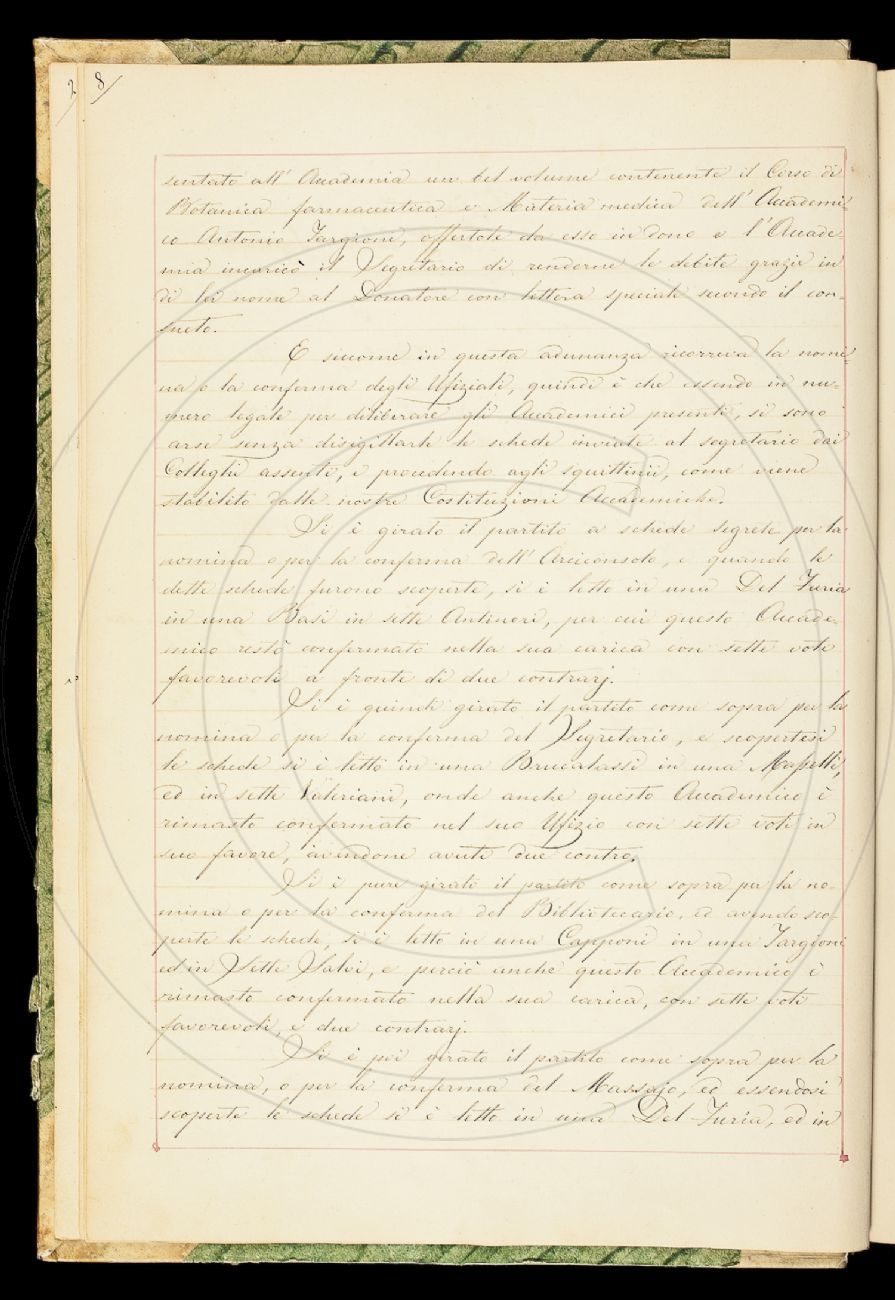 2 8
sentato all' Accademia un bel volume contenente il Corso di
Botanica farmaceutica e Materia medica dell' Accademi-
co Antonio Targioni, offertole da esso in dono e l'Accade-
mia incaricò il Segretario di renderne le debite grazie in
di lei nome al Donatore con lettera speciale secondo il con-
sueto.
E siccome in questa adunanza ricorreva la nomi-
na o la conferma degli Ufiziali, quindi è che essendo in nu-
mero legale per deliberare gli Accademici presenti, si sono
arse senza disigillarle le schede inviate al segretario dai
Colleghi assenti, e procedendo agli squittinii, come viene
stabilito dalle nostre Costituzioni Accademiche.
Si è girato il partito a schede segrete per la
nomina o per la conferma dell' Arciconsolo, e quando le
dette schede furono scoperte, si è letto in una Del Furia
in una Basi in sette Antinori, per cui questo Accade-
mico restò confermato nella sua carica con sette voti
favorevoli a fronte di due contrarj.
Si è quindi girato il partito come sopra per la
nomina o per la conferma del Segretario, e scopertesi
le schede si è letto in una Brucalassi in una Maselli,
ed in sette Valeriani, onde anche questo Accademico è
rimasto confermato nel suo Ufizio con sette voti in
suo favore, avendone avuti due contro.
Si è pure girato il partito come sopra per la no-
mina o per la conferma del Bibliotecario, ed avendo sco-
perte le schede, si è letto in una Capponi in una Targioni
ed in Sette Salvi, e perciò anche questo Accademico è
rimasto confermato nella sua carica, con sette voti
favorevoli, e due contrarj.
Si è poi girato il partito come sopra per la
nomina, o per la conferma del Massajo, ed essendosi
scoperte le schede si è letto in una Del Furia, ed in